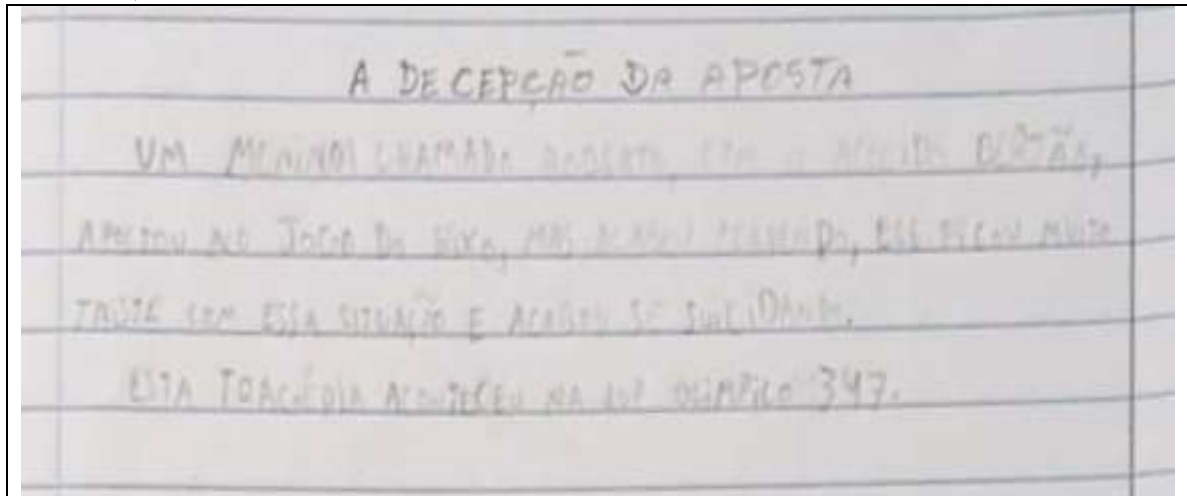 A DECEPÇÃO DA APOSTA
UM MENINO CHAMADO ROBERTO, COM O APELIDO
APOSTOU NO JOGO DO BIXO, MAS ACABOU PERDENDO, ELE FICOU MUITO
TRISTE COM ESSA SITUAÇÃO E ACABOU SE SUICIDANDO.
ESTA TRAGÉDIA ACONTECEU NA OLIMPICO 347.